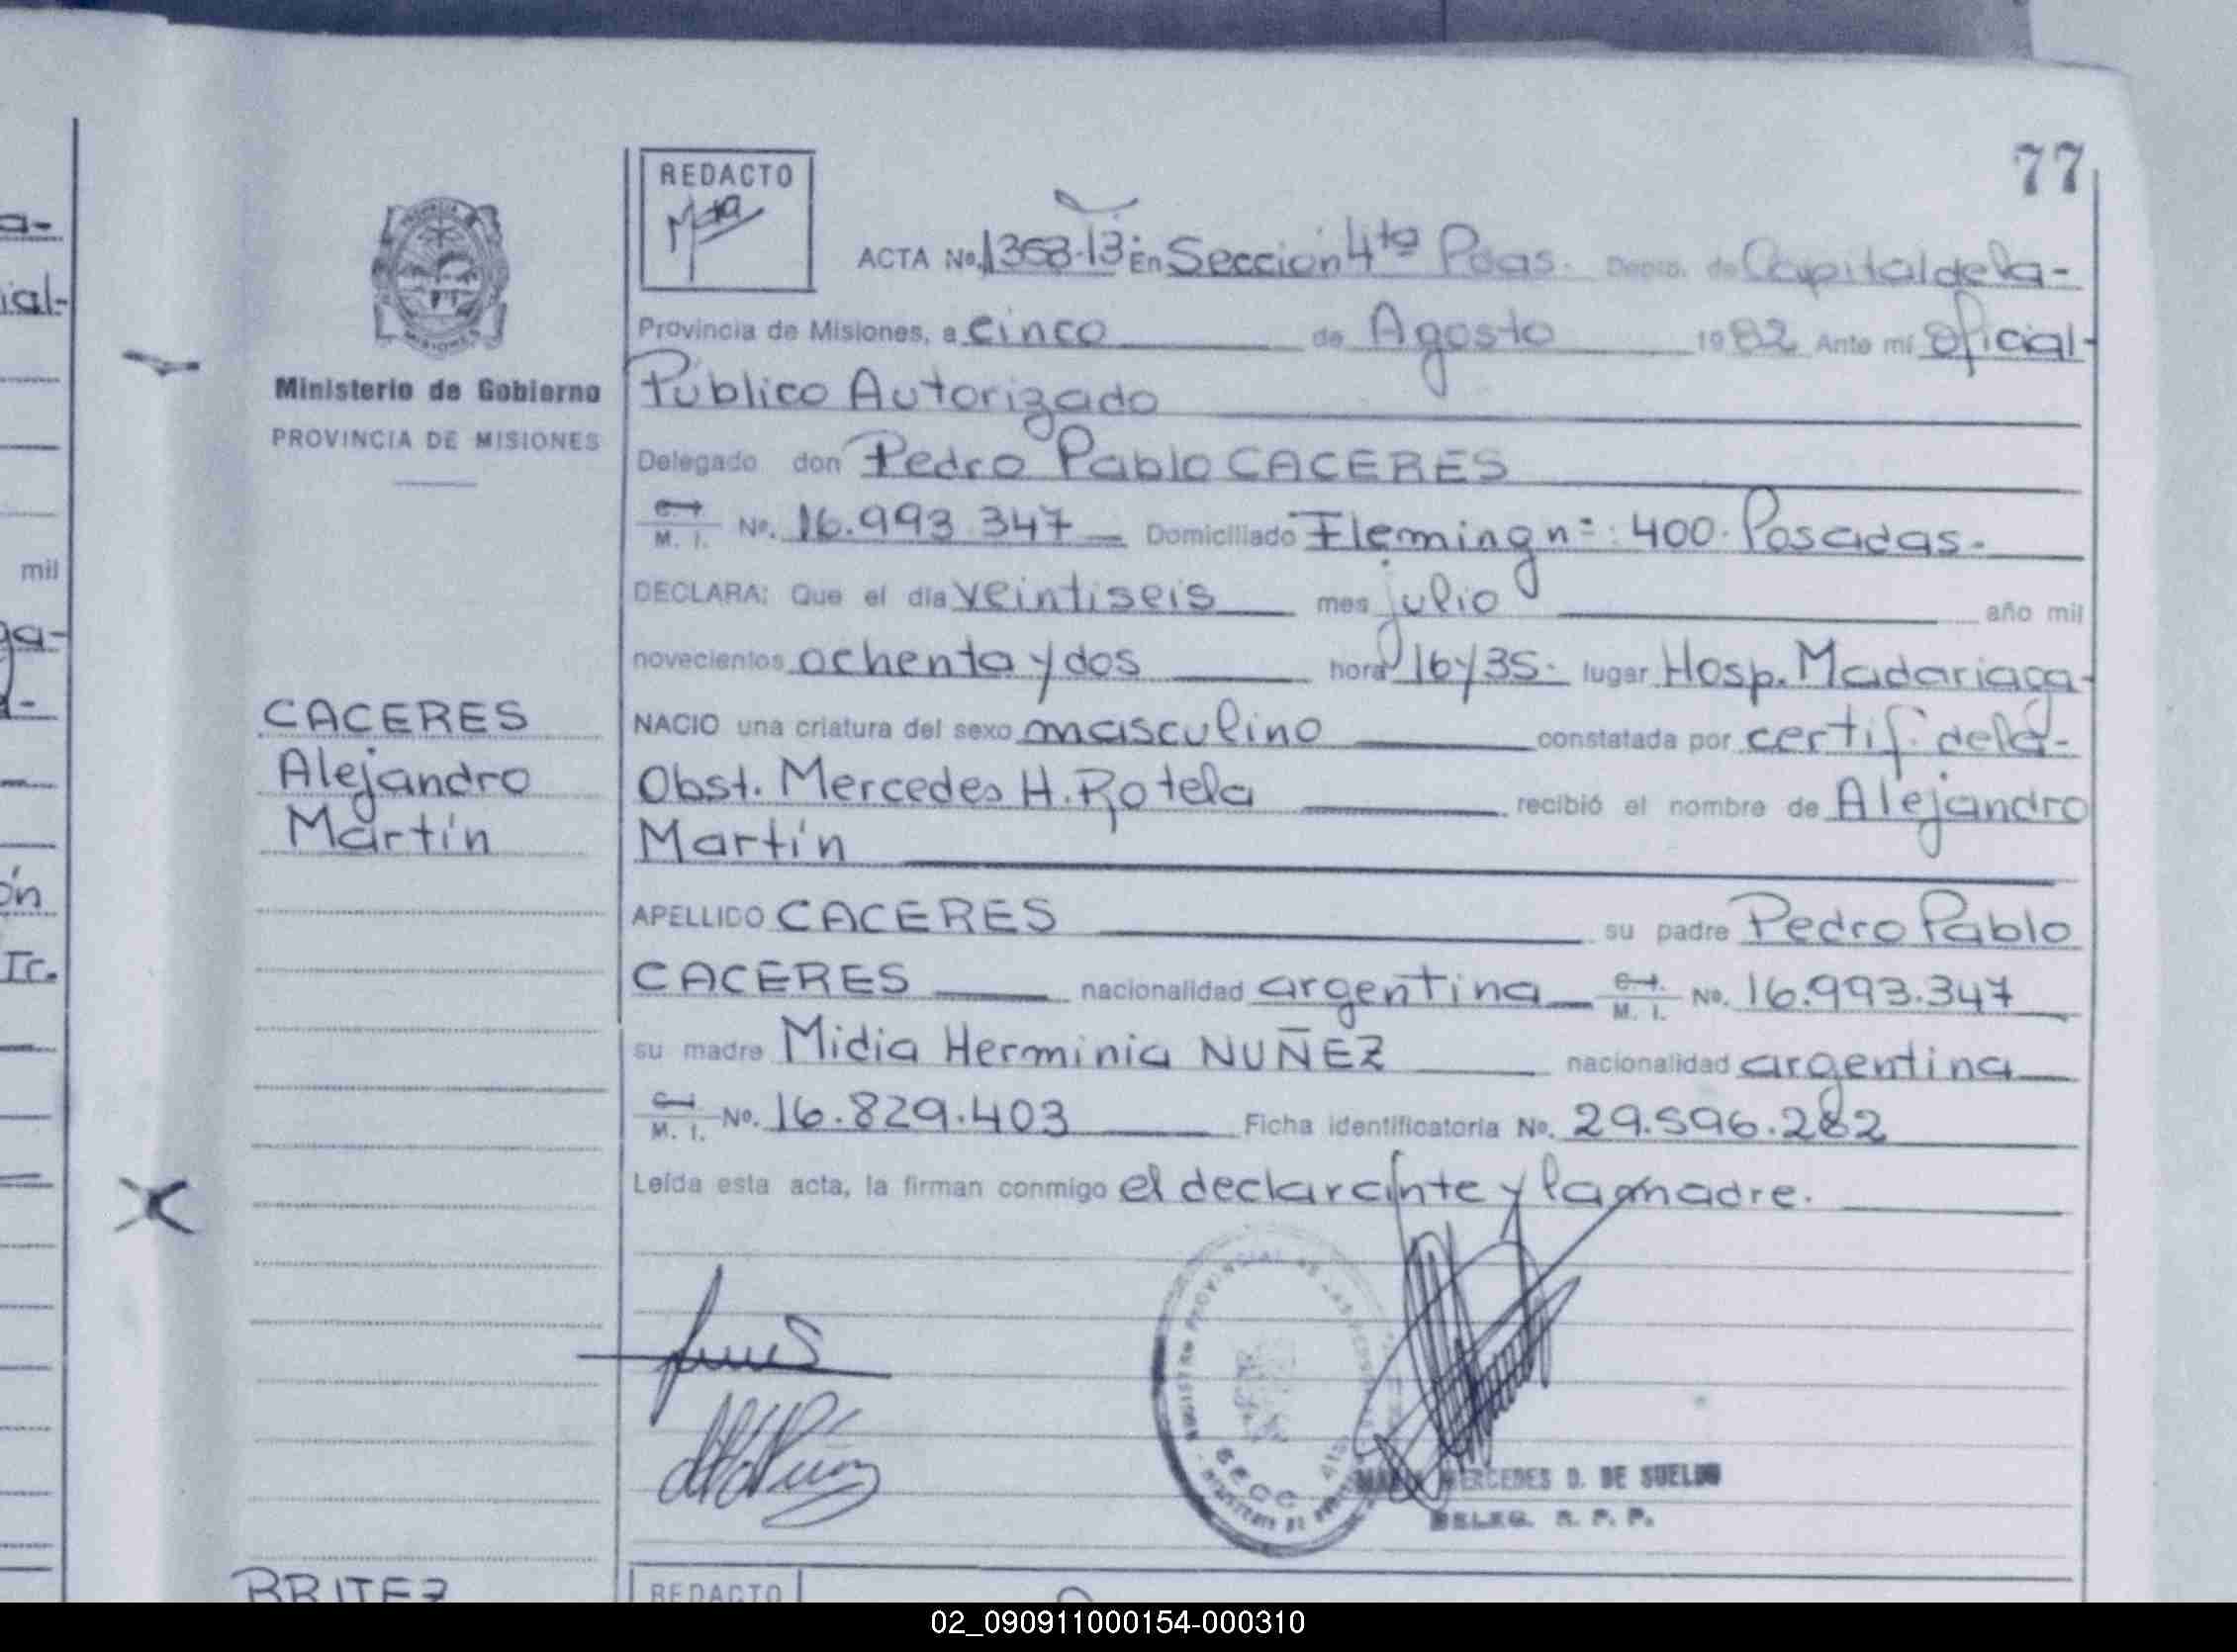 77
REDACTO
ACTA No. 1353-13 En Sección 4ta Pdas. Depto. de Capital de la-
Provincia de Misiones, a cinco de Agosto 1982 Ante mí oficial-
Ministerio de Gobierno
PROVINCIA DE MISIONES
Público Autorizado
Delegado don Pedro Pablo CACERES
M. I. No. 16.993.347 Domiciliado Fleming nº: 400. Posadas.-
DECLARA: Que el día veintiseis mes julio año mil
novecientos ochenta y dos hora 16y35.- lugar Hosp. Madariaga-
NACIO una criatura del sexo masculino constatada por certif. de la-
Obst. Mercedes H. Rotela recibió el nombre de Alejandro
Martín
CACERES
Alejandro
Martín
APELLIDO CACERES su padre Pedro Pablo
CACERES nacionalidad argentina M. I. No. 16.993.347
su madre Midia Herminia NUÑEZ nacionalidad argentina
M. I. No. 16.829.403 Ficha identificatoria No. 29.596.282
Leída esta acta, la firman conmigo el declarante y la madre.
MERCEDES D. DE SUELDO
DELEG. R. P. P.
BRITEZ
REDACTO
a-
ial-
mil
ga-
a-
ón
Ir.
02_090911000154-000310